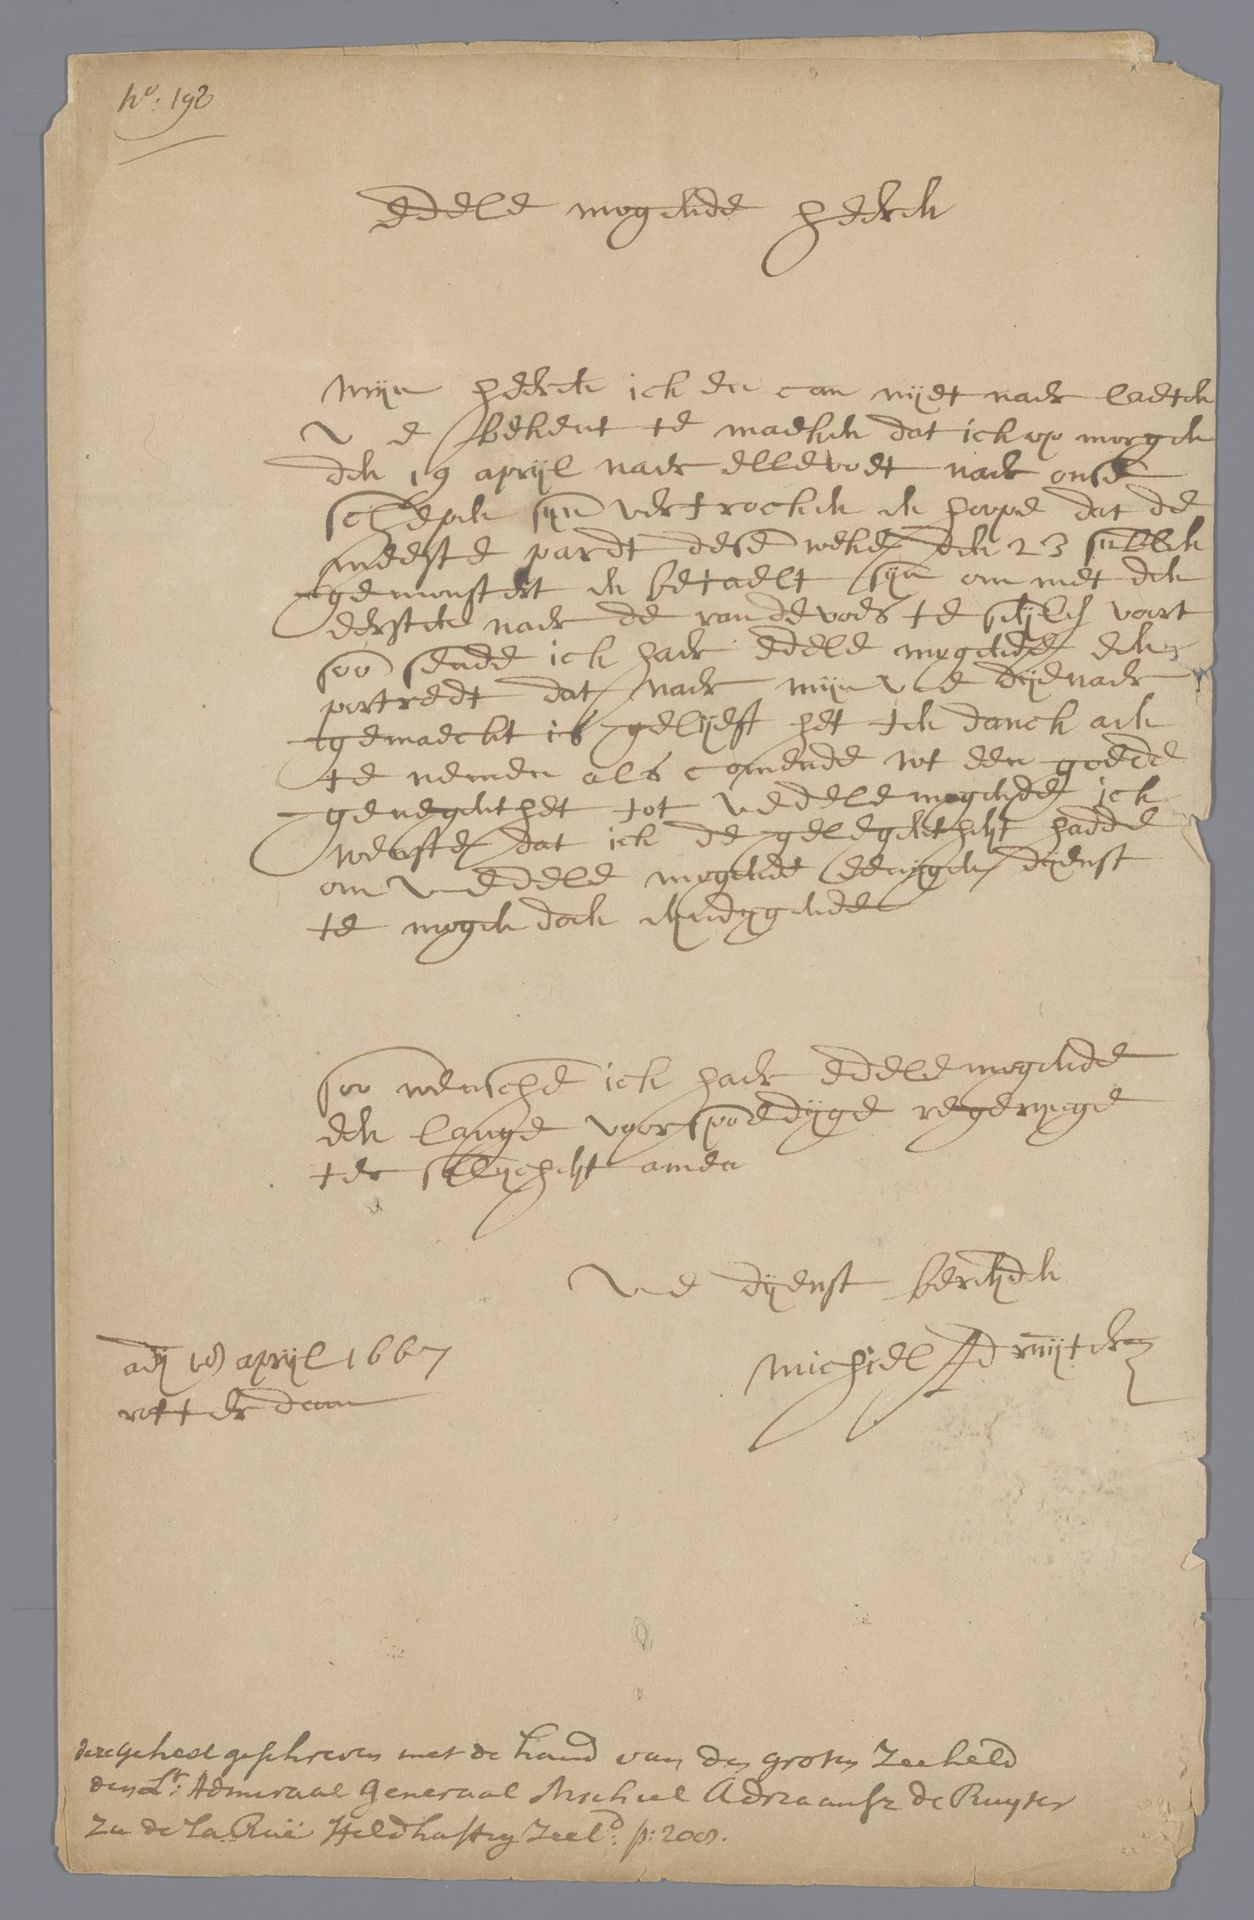 No: 198
Edele mogende heeren
Mijn heeren ick en can nijet naer laeten
U E bekent te maeken dat ick op morgen
den 19 aprijl naer ellevoet naer onse
schepen sijn vertrocken en hoope dat de
meeste pardt dese weke den 23 sullen
gemonstert en betaelt sijn om met den
eersten naer de randevoes te seijlen voort
soo sende ick haer Edele mogende een
portredt dat naer mijn U E dijenaer
gemaeckt is gelijeft het ten danck aen
te nemen als comende wt een goede
genegenthet tot U Edele mogende ick
wenste dat ick de gelegentheijt hadde
om U Edele mogende eenijgen dijenst
te mogen doen
soo wensche ick haer Edele mogende
een lange voorspoedijge regerijnge
ter salijcheijt amen
U E dijenst bereijden
Michiel A d ruijter
adij 18 aprijl 1667
rotterdam
deze geheel geschreven met de hand van den groten Zeeheld
den Lt: Admiraal Generaal Michiel Adriaansz de Ruyter
Zie de La Ruë Heldhaftig Zeeld: p: 200.